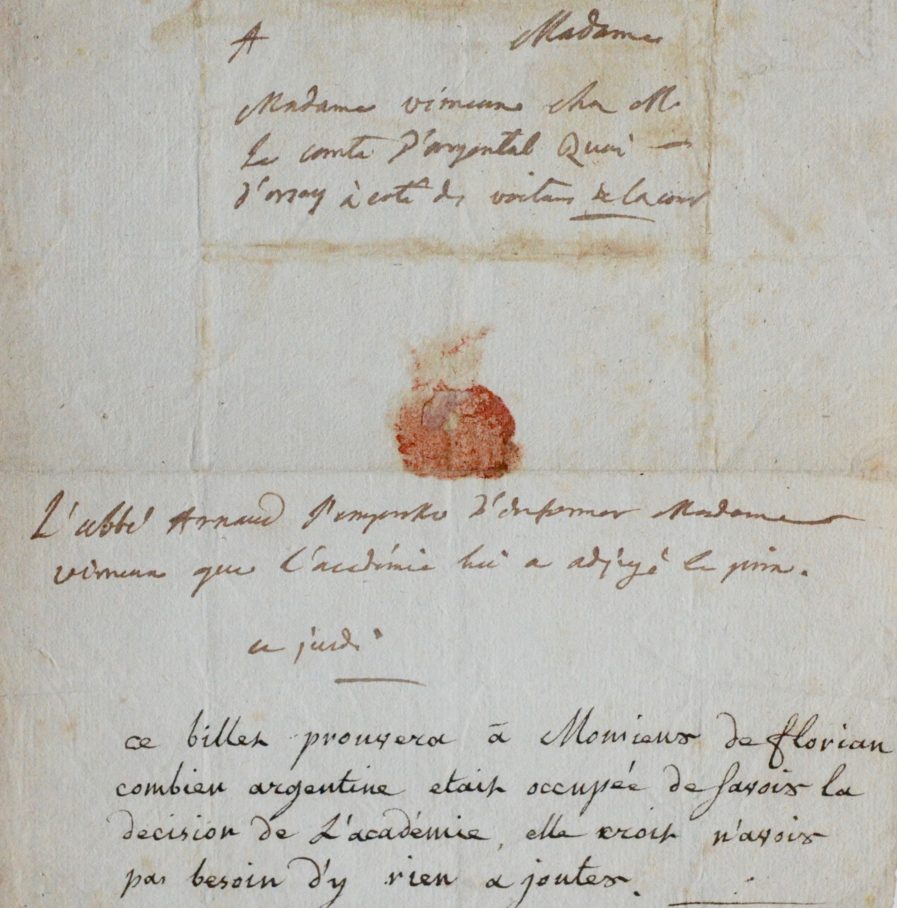 A Madame
Madame vimeux chez M.
Le comte d'argental Quai
d'orsay à coté des voitures de la cour
L'abbé Arnaud s'empresse d'informer Madame
vimeux que l'académie lui a adjugé le prix.
ce jeudi
ce billet prouvera à Monsieur de florian
combien argentine etait occupée de savoir la
decision de L'académie, elle croit n'avoir
pas besoin d'y rien ajouter.